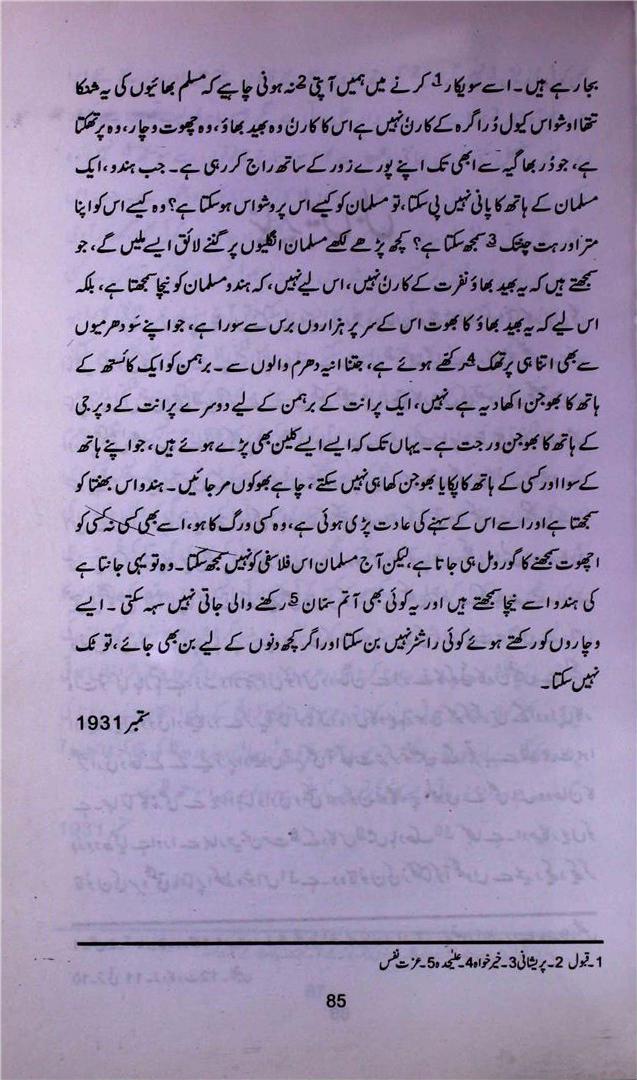 بجا رہے ہیں۔ اسے سویکار1 کرنے میں ہمیں آپتی2 نہ ہونی چاہیے کہ مسلم بھائیوں کی یہ شنکا
تتھا اوشواس کیول دُراگرہ کے کارنُ نہیں ہے اس کا کارنُ وہ بھید بھاؤ، وہ چھوت وچار، وہ پرتھکتا
ہے، جو دُربھاگیہ سے ابھی تک اپنے پورے زور کے ساتھ راج کر رہی ہے۔ جب ہندو، ایک
مسلمان کے ہاتھ کا پانی نہیں پی سکتا، تو مسلمان کو کیسے اس پر وشواس ہو سکتا ہے؟ وہ کیسے اس کو اپنا
متر اور ہت چنتک3 سمجھ سکتا ہے؟ کچھ پڑھے لکھے مسلمان انگلیوں پر گننے لائق ایسے ملیں گے، جو
سمجھتے ہیں کہ یہ بھید بھاؤ نفرت کے کارنُ نہیں، اس لیے نہیں، کہ ہندو مسلمان کو نیچا سمجھتا ہے، بلکہ
اس لیے کہ یہ بھید بھاؤ کا بھوت اس کے سر پر ہزاروں برس سے سورا ہے، جو اپنے سَو دھرمیوں
سے بھی اتنا ہی پرتھک4 رکھے ہوئے ہے، جتنا انیہ دھرم والوں سے۔ برہمن کو ایک کائستھ کے
ہاتھ کا بھوجن اکھادیہ ہے۔ نہیں، ایک پرانت کے برہمن کے لیے دوسرے پرانت کے وپر جی
کے ہاتھ کا بھوجن ورجت ہے۔ یہاں تک کہ ایسے ایسے کلین بھی پڑے ہوئے ہیں، جو اپنے ہاتھ
کے سوا اور کسی کے ہاتھ کا پکایا بھوجن کھا ہی نہیں سکتے، چاہے بھوکوں مر جائیں۔ ہندو اس بھنتا کو
سمجھتا ہے اور اسے اس کے سہنے کی عادت پڑی ہوئی ہے، وہ کسی ورگ کا ہو، اسے بھی کسی نہ کسی کو
اچھوت سمجھنے کا گورو مل ہی جاتا ہے، لیکن آج مسلمان اس فلاسفی کو نہیں سمجھ سکتا۔ وہ تو یہی جانتا ہے
کی ہندو اسے نیچا سمجھتے ہیں اور یہ کوئی بھی آتم سمّان5 رکھنے والی جاتی نہیں سہہ سکتی۔ ایسے
وچاروں کو رکھتے ہوئے کوئی راشٹر نہیں بن سکتا اور اگر کچھ دنوں کے لیے بن بھی جائے، تو ٹک
نہیں سکتا۔
ستمبر 1931
1۔ قبول 2۔ پریشانی 3۔ خیر خواہ 4۔ علیحدہ 5۔ عزت نفس
85